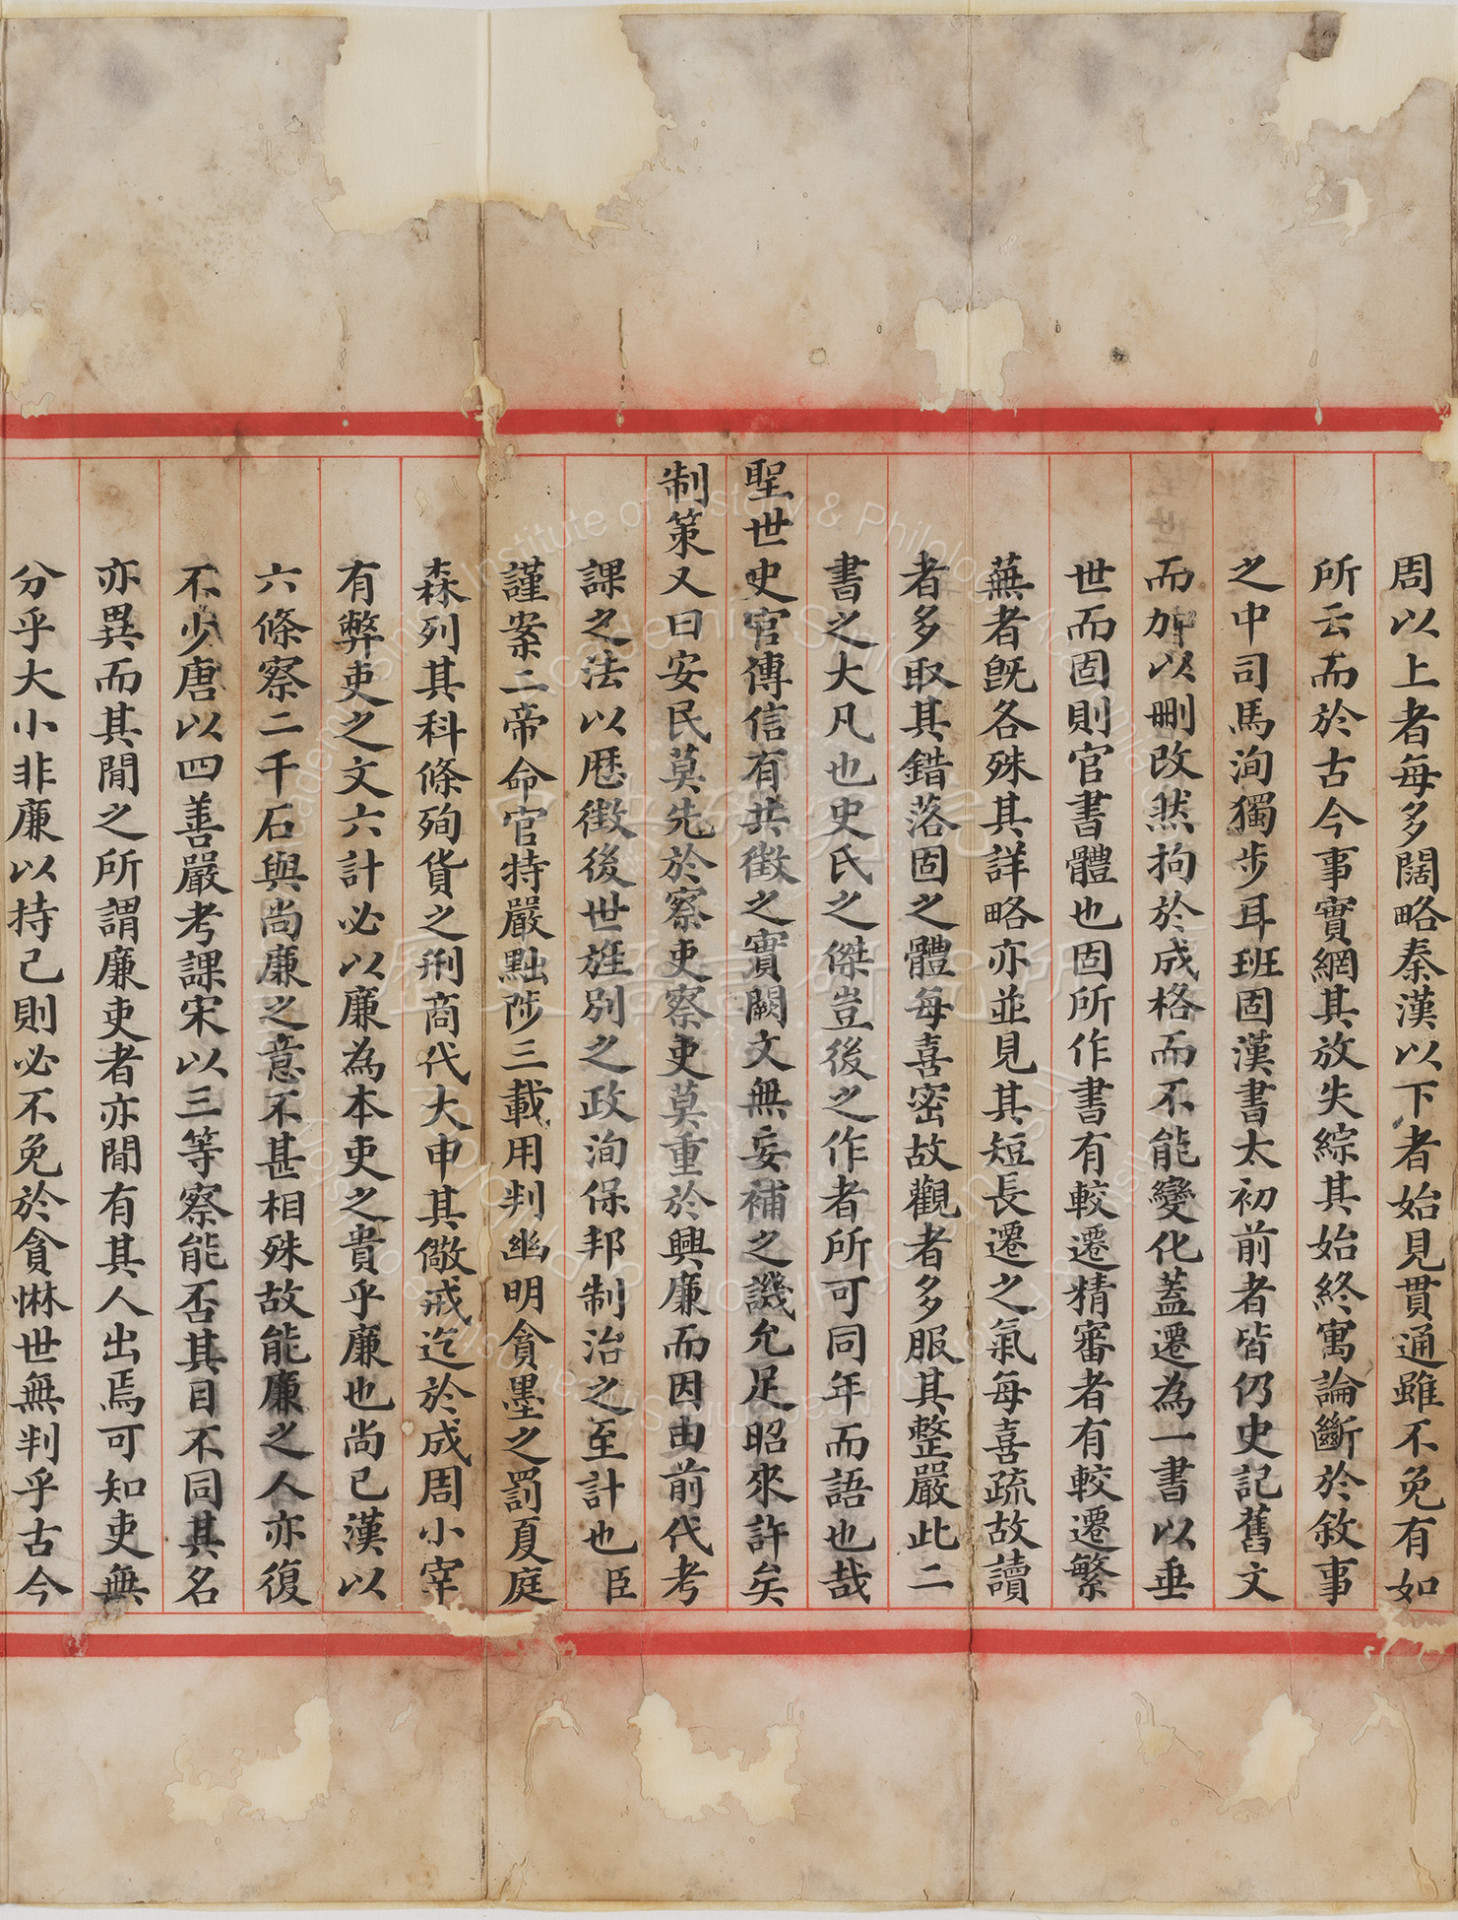 周以上者每多闊略秦漢以下者始見貫通雖不免有如
所云而於古今事實網其放失綜其始終寓論斷於敘事
之中司馬洵獨步耳班固漢書太初前者皆仍史記舊文
而加以刪改然拘於成格而不能變化蓋遷為一書以垂
世而固則官書體也固所作書有較遷精審者有較遷繁
蕪者旣各殊其詳略亦並見其短長遷之氣每喜疏故讀
者多取其錯落固之體每喜密故觀者多服其整嚴此二
書之大凡也史氏之傑豈後之作者所可同年而語也哉
聖世史官傳信有共徵之實闕文無妄補之譏允足昭來許矣
制策又曰安民莫先於察吏察吏莫重於興廉而因由前代考
課之法以厯徵後世旌別之政洵保邦制治之至計也臣
謹案二帝命官特嚴黜陟三載用判幽明貪墨之罰夏庭
森列其科條殉貨之刑商代大申其儆戒迄於成周小宰
有弊吏之文六計必以廉為本吏之貴乎廉也尚已漢以
六條察二千石與尚廉之意不甚相殊故能廉之人亦復
不少唐以四善嚴考課宋以三等察能否其目不同其名
亦異而其閒之所謂廉吏者亦閒有其人出焉可知吏無
分乎大小非廉以持己則必不免於貪惏世無判乎古今
Institute of History & Philology, Academia Sinica